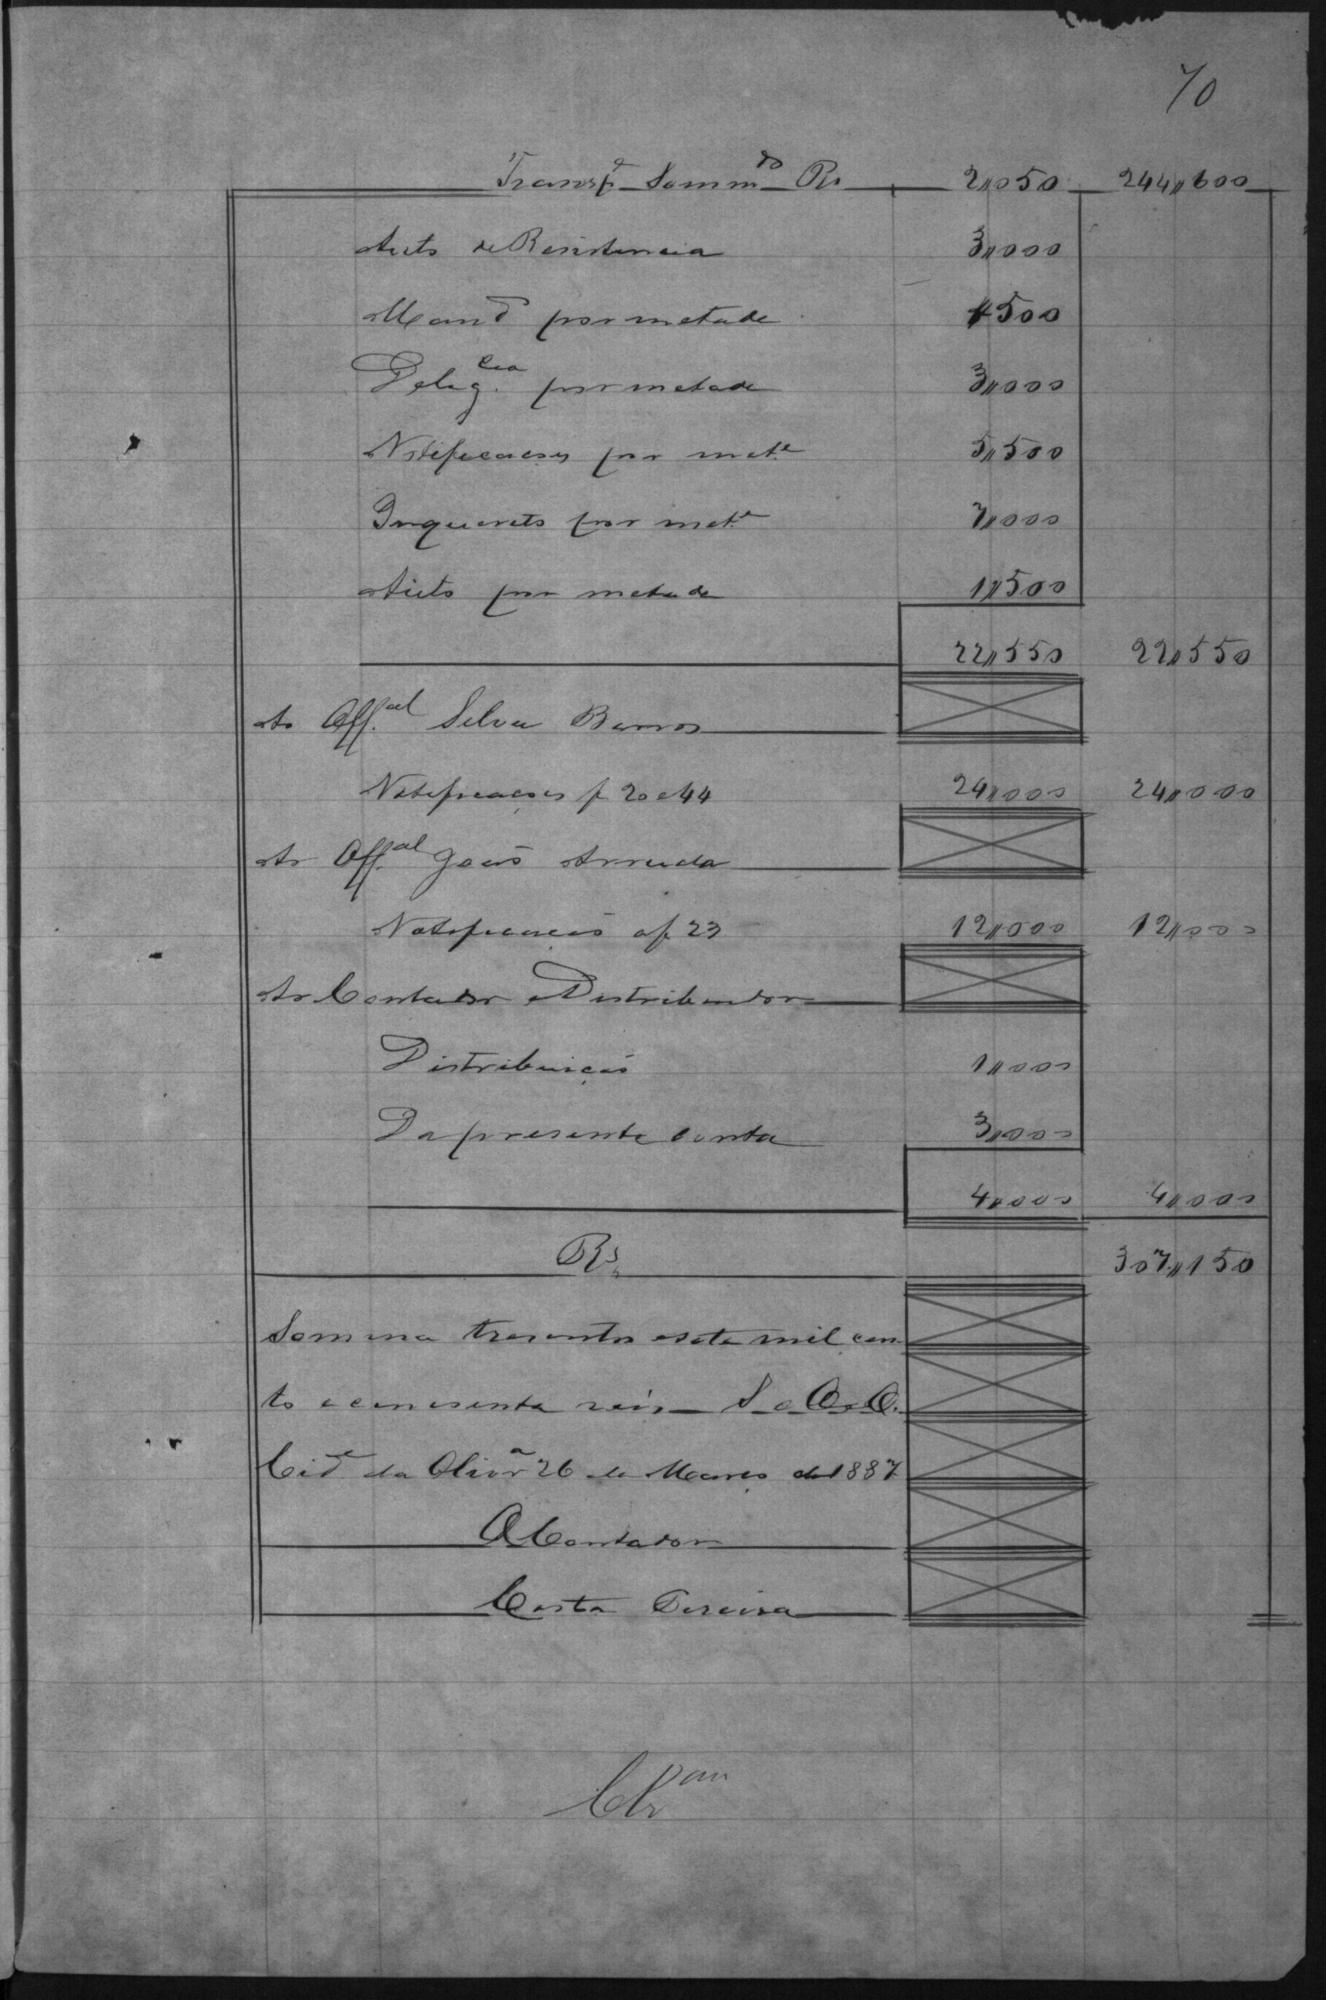 70
Transp.e Somm.do Rs 2,,050 244,,600
Auto de Resistencia 3,,000
Mand.o por metade ,,500
Delig.cia por metade 3,,000
Notificacões por met.e 5,,500
Inquerito por met.e 7,,000
Auto por metade 1,,500
22,,550 22,,550
Ao Off.al Silva Barros
Notificacões f 20 e 44 24,,000 24,,000
Ao Off.al Goes Arruda
Notificacão af 23 12,,000 12,,000
Ao Contador e Distribuidor
Distribuicão 1,,000
Da presente conta 3,,000
4,,000 4,,000
Rs 307,,150
Somma tresentos e sete mil cen
to e cincoenta reis S. e O. O.
Cid.e da Oliv.a 26 de Março de 1887
O Contador
Costa Pereira